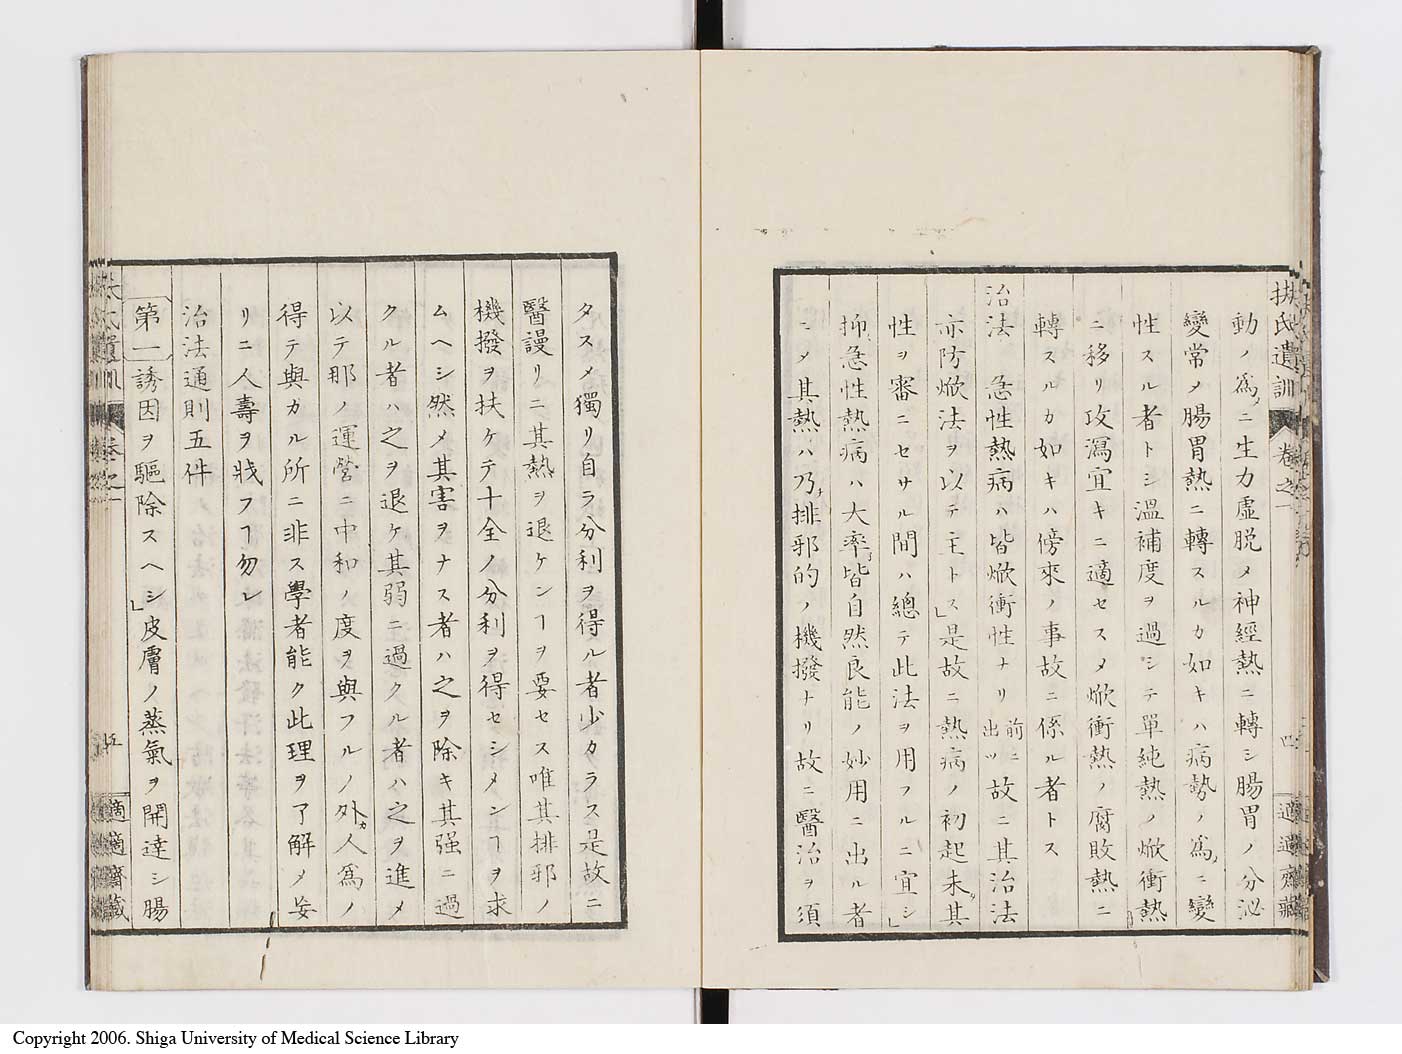 扶氏遺訓 卷之一 四 適適齋藏
動ノ為メニ生力虛脱〆神經熱ニ轉シ腸胃ノ分泌
變常〆腸胃熱ニ轉スルカ如キハ病勢ノ為メニ變
性スル者トシ溫補度ヲ過シテ單純熱ノ焮衝熱
ニ移リ攻瀉宜キニ適セス〆焮衝熱ノ腐敗熱ニ
轉スルカ如キハ傍來ノ事故ニ係ル者トス
治法 急性熱病ハ皆焮衝性ナリ前ニ出ツ故ニ其治法
亦防焮法ヲ以テ主トス」是故ニ熱病ノ初起未タ其
性ヲ審ニセサル間ハ總テ此法ヲ用フルニ宜シ」
抑急性熱病ハ大率皆自然良能ノ妙用ニ出ル者
ニ〆其熱ハ乃チ排邪的ノ機撥ナリ故ニ醫治ヲ須
タス〆獨リ自ラ分利ヲ得ル者少カラス是故ニ
醫謾リニ其熱ヲ退ケンヿヲ要セス唯其排邪ノ
機撥ヲ扶ケテ十全ノ分利ヲ得セシメンヿヲ求
ムヘシ然〆其害ヲナス者ハ之ヲ除キ其强ニ過
クル者ハ之ヲ退ケ其弱ニ過クル者ハ之ヲ進メ
以テ那ノ運營ニ中和ノ度ヲ與フルノ外カ人為ノ
得テ與カル所ニ非ス學者能ク此理ヲ了解〆妄
リニ人壽ヲ戕フヿ勿レ
治法通則五件
第一誘因ヲ驅除スヘシ」皮膚ノ蒸氣ヲ開達シ腸
五 適適齋藏
Copyright 2006. Shiga University of Medical Science Library